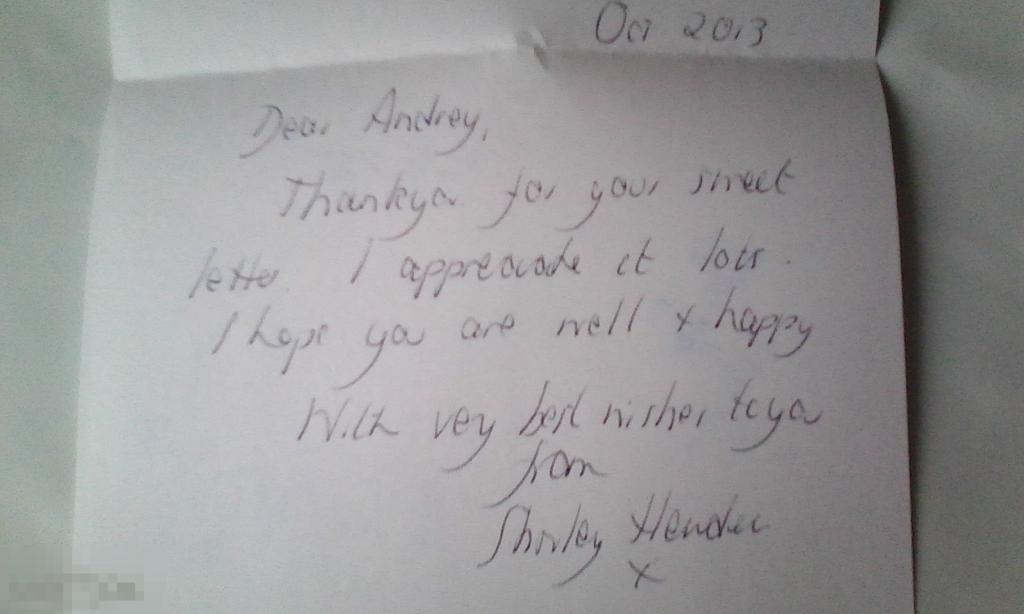 Oct 2013
Dear Andrey,
Thankyou for your sweet
letter. I appreciate it lots.
I hope you are well + happy
With very best wishes to you
from
Shirley
x